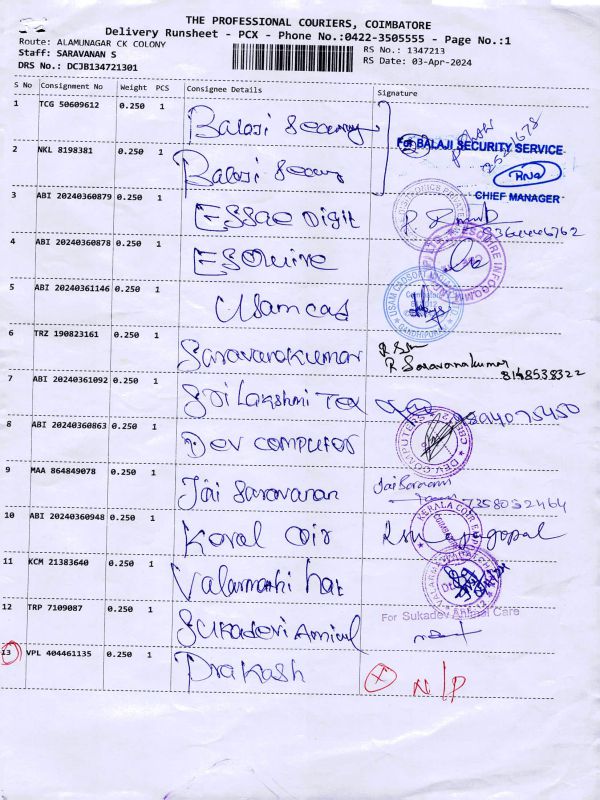 THE PROFESSIONAL COURIERS, COIMBATORE
Delivery Runsheet - PCX - Phone No.:0422-3505555 - Page No.:1
Route: ALAMUNAGAR CK COLONY RS No.: 1347213
Staff: SARAVANAN S RS Date: 03-Apr-2024
DRS No.: DCJB134721301
S No Consignment No Weight PCS Consignee Details Signature
1 TCG 50609612 0.250 1 Balaji Security
For BALAJI SECURITY SERVICE
2 NKL 8198381 0.250 1 Balaji
CHIEF MANAGER
3 ABI 20240360879 0.250 1 ESSae Digit
4 ABI 20240360878 0.250 1 ESQuire
5 ABI 20240361146 0.250 1 Usamcad
6 TRZ 190823161 0.250 1 Saravanakumar
R Saravanakumar
8148538322
7 ABI 20240361092 0.250 1 Sri Lakshmi Tex
8 ABI 20240360863 0.250 1 Dev computer
DEV COMPUTERS
9 MAA 864849078 0.250 1 Jai Saravanan
7358052464
10 ABI 20240360948 0.250 1 Koval Coir
KERALA COIR
11 KCM 21383640 0.250 1 Valarmathi
12 TRP 7109087 0.250 1 Sukadevi Animal
For Sukadev Animal Care
13 VPL 404461135 0.250 1 Prakash
X N/P